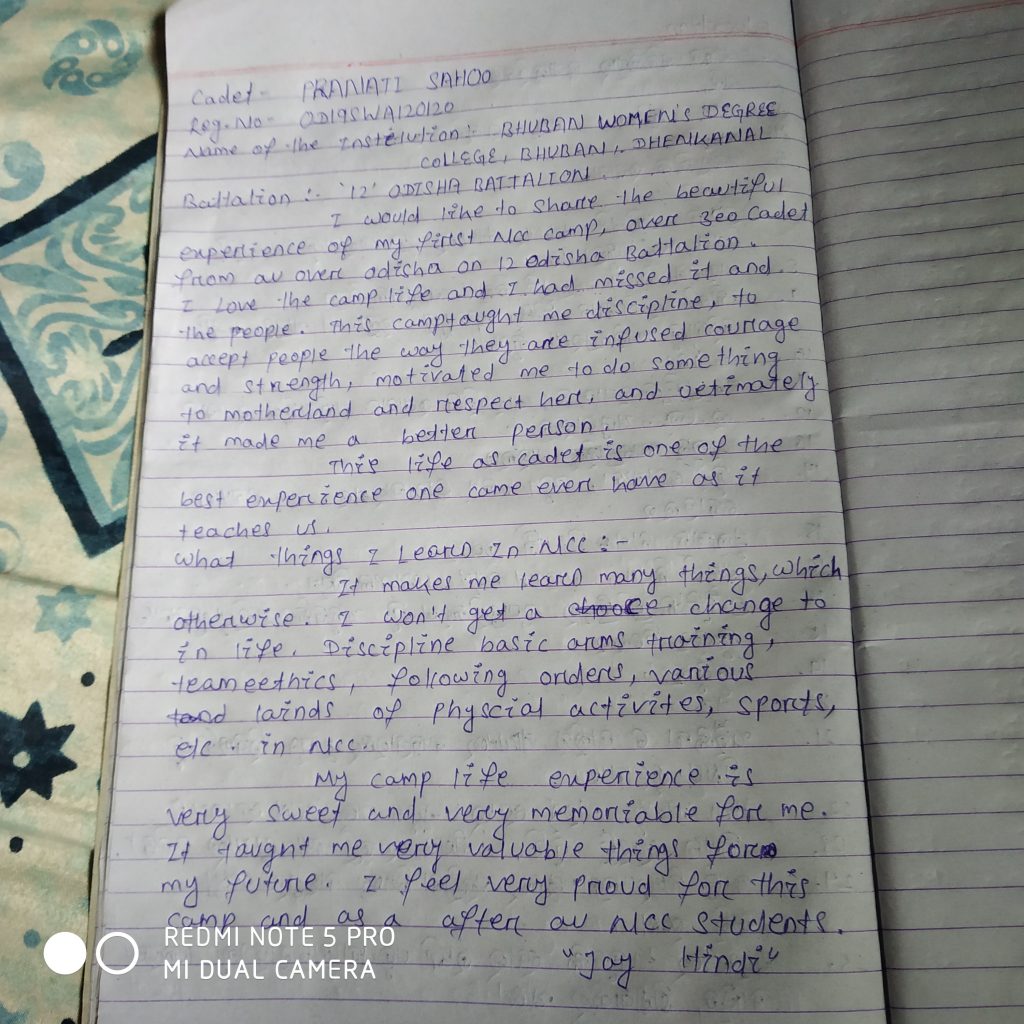 Cadet - PRANATI SAHOO
Reg. No - OD19SWA120120
Name of the Instelution :- BHUBAN WOMEN'S DEGREE
COLLEGE, BHUBAN, DHENKANAL
Battalion :- '12' ODISHA BATTALION.
I would like to share the beautiful
experience of my first NCC camp, over 300 Cadet
from all over odisha on 12 odisha Battalion.
I Love the camp life and I had missed it and
the people. This camp taught me discipline, to
accept people the way they are infused courage
and strength, motivated me to do something
to motherland and respect her, and uetimately
it made me a better person.
This life as cadet is one of the
best experience one came ever have as it
teaches us.
What things I Learn In NCC :-
It makes me learn many things, which
otherwise. I won't get a change to
in life. Discipline basic arms training,
teameethics, following orders, various
lainds of physcial activites, sports,
etc. in NCC.
My camp life experience is
very sweet and very memoriable for me.
It taught me very valuable things for
my future. I feel very proud for this
camp and as a after all NCC students.
"Jay Hindi"
REDMI NOTE 5 PRO
MI DUAL CAMERA